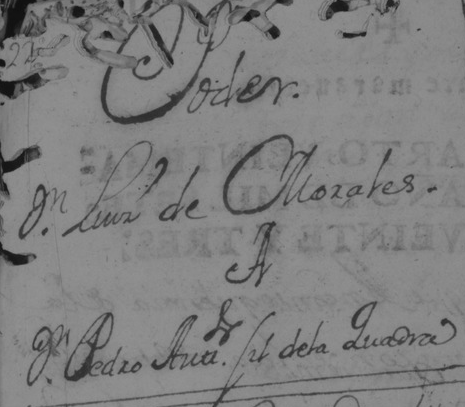 22
Poder.
Dn. Luis de Morales.
A
Dn. Pedro Antt. Gil dela Quadra